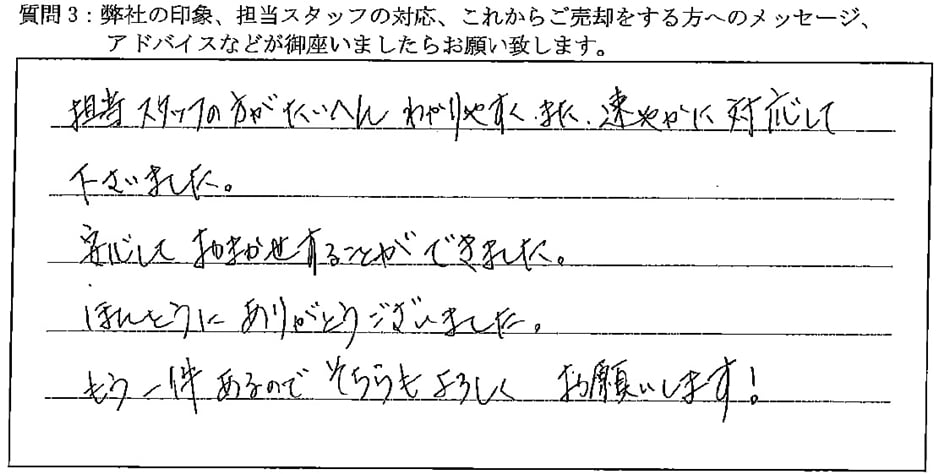 質問3：弊社の印象、担当スタッフの対応、これからご売却をする方へのメッセージ、
アドバイスなどが御座いましたらお願い致します。
担当スタッフの方がたいへんわかりやすく、また、速やかに対応して
下さいました。
安心しておまかせすることができました。
ほんとうにありがとうございました。
もう一件あるのでそちらもよろしくお願いします！